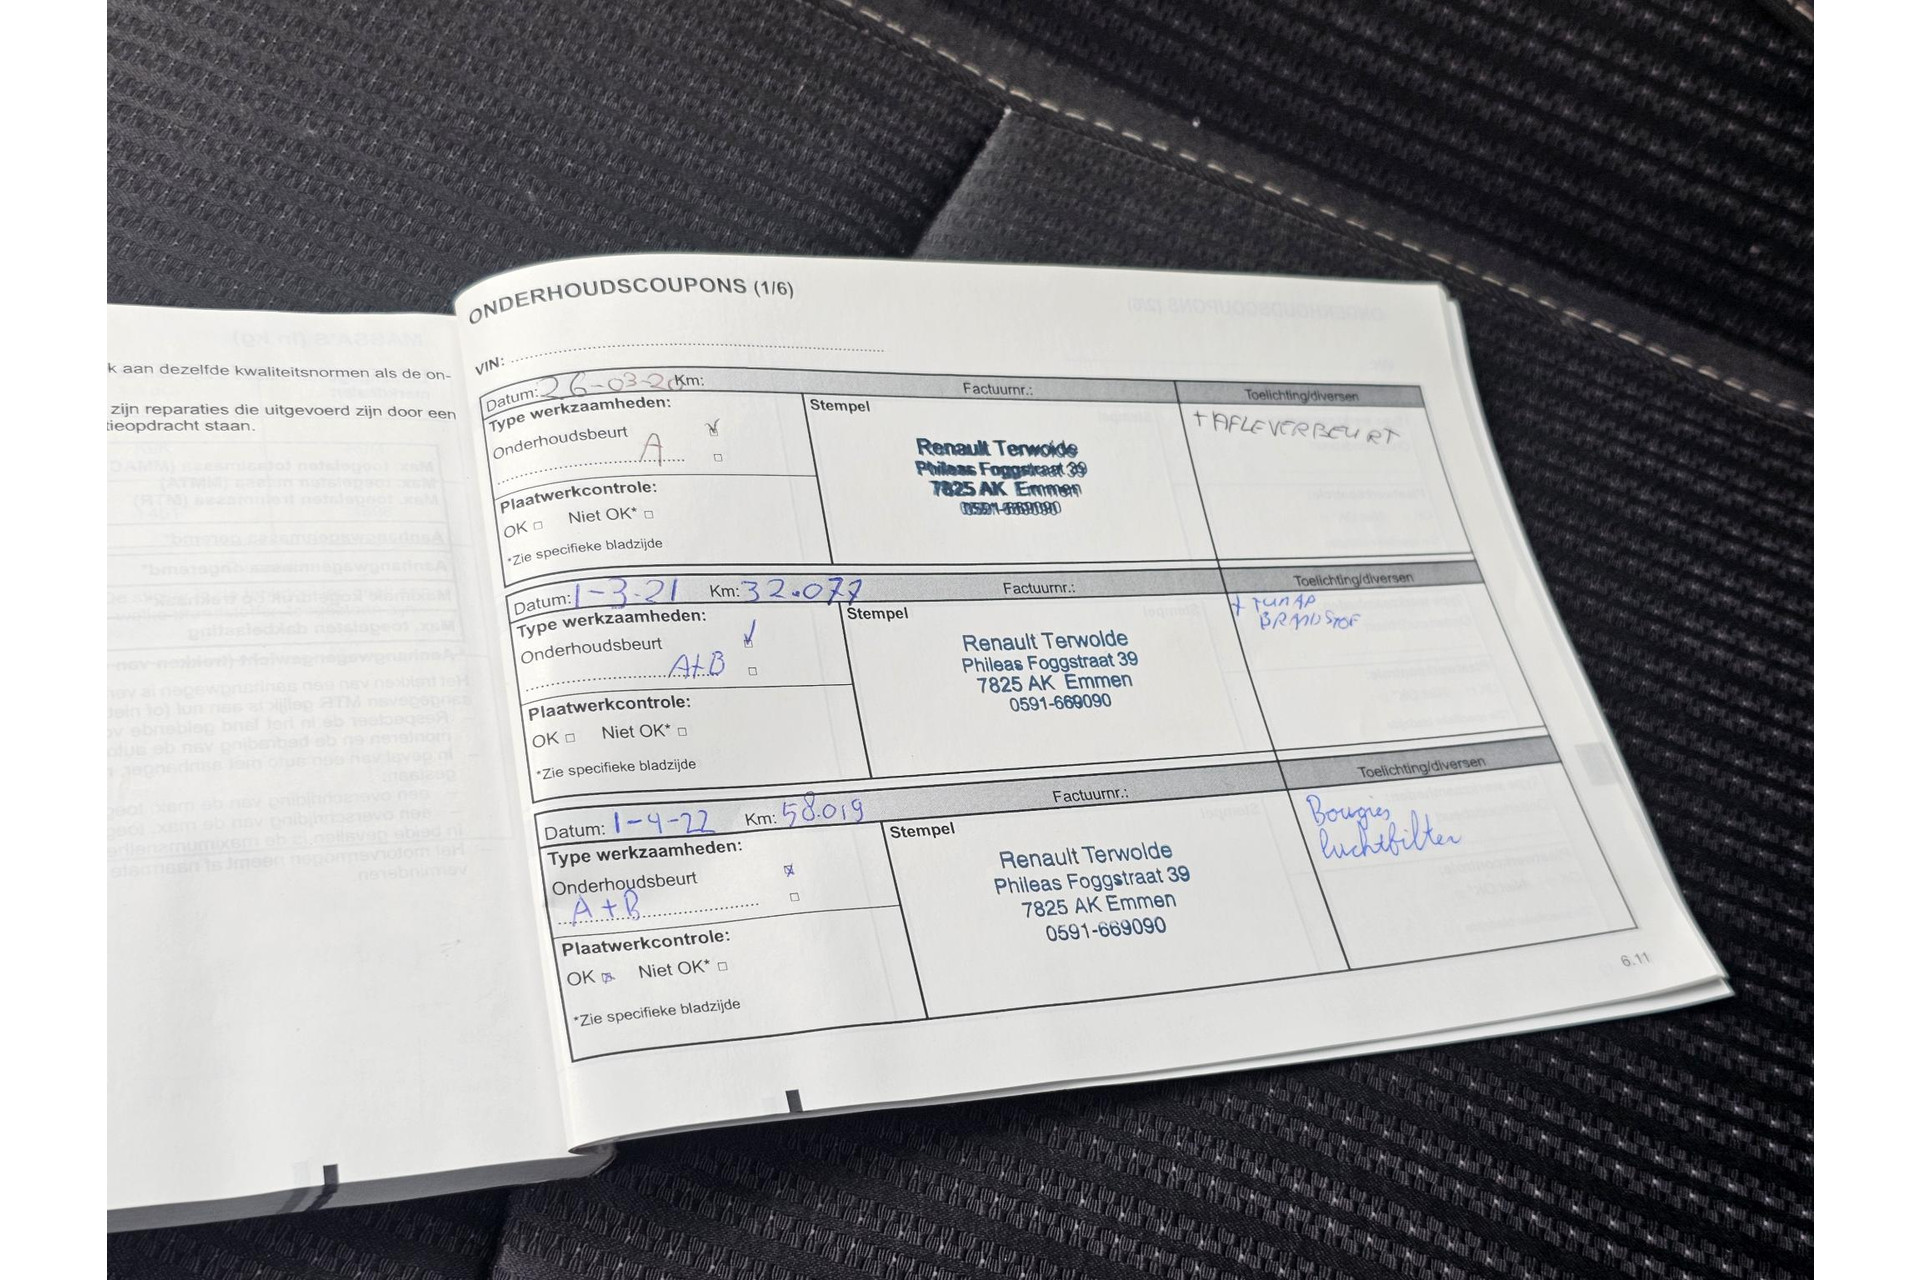 k aan dezelfde kwaliteitsnormen als de on-
zijn reparaties die uitgevoerd zijn door een
tieopdracht staan.
ONDERHOUDSCOUPONS (1/6)
VIN:
Datum: 26-03-20 Km: Factuurnr.: Toelichting/diversen
Type werkzaamheden:
Onderhoudsbeurt
A
Stempel
Renault Terwolde
Phileas Foggstraat 39
7825 AK Emmen
0591-669090
+ AFLEVERBEURT
Plaatwerkcontrole:
OK Niet OK*
*Zie specifieke bladzijde
Datum: 1-3-21 Km: 32.077 Factuurnr.: Toelichting/diversen
Type werkzaamheden:
Onderhoudsbeurt
A+B
Stempel
Renault Terwolde
Phileas Foggstraat 39
7825 AK Emmen
0591-669090
+ TUNAP
BRANDSTOF
Plaatwerkcontrole:
OK Niet OK*
*Zie specifieke bladzijde
Datum: 1-4-22 Km: 58.019 Factuurnr.: Toelichting/diversen
Type werkzaamheden:
Onderhoudsbeurt
A+B
Stempel
Renault Terwolde
Phileas Foggstraat 39
7825 AK Emmen
0591-669090
Bougies
luchtfilter
Plaatwerkcontrole:
OK Niet OK*
*Zie specifieke bladzijde
6.11